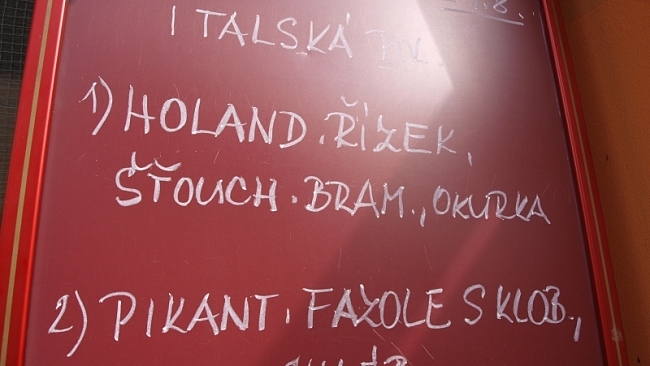 ITALSKÁ
1) HOLAND. ŘÍZEK,
ŠŤOUCH. BRAM., OKURKA
2) PIKANT. FAZOLE S KLOB.,